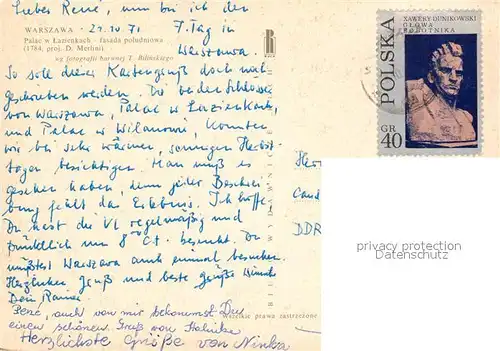 Lieber René, nun bin ich den
WARSZAWA 27.10.71 7. Tag in
Pałac w Łazienkach - fasada południowa Warszawa.
(1784, proj. D. Merlini)
wg fotografii barwnej T. Bilińskiego
So soll dieser Kartengruß doch mal
geschrieben werden. Die beiden Schlösser
von Warszawa, Palac w Lazienkach,
und Palac w Wilanowie, konnten
wir bei sehr warmen, sonnigen Herbst-
tagen besichtigen. Man muß es
gesehen haben, denn jeder Beschrei-
bung fehlt das Erlebnis. Ich hoffe
Du hast die VL regelmäßig und
pünktlich um 8 c.t. besucht. Du
müßtest Warszawa auch einmal besuchen.
Herzlichen Gruß und beste Grüße
Dein Rainer
René, auch von mir bekommst Du
einen schönen Gruß von Halinka
Herzlichste Grüße von Ninka
Wszelkie prawa zastrzeżone
XAWERY DUNIKOWSKI
GŁOWA
ROBOTNIKA
POLSKA
GR
40
Herr
Cand
DDR
privacy protection
www.ansichtskarten-center.de